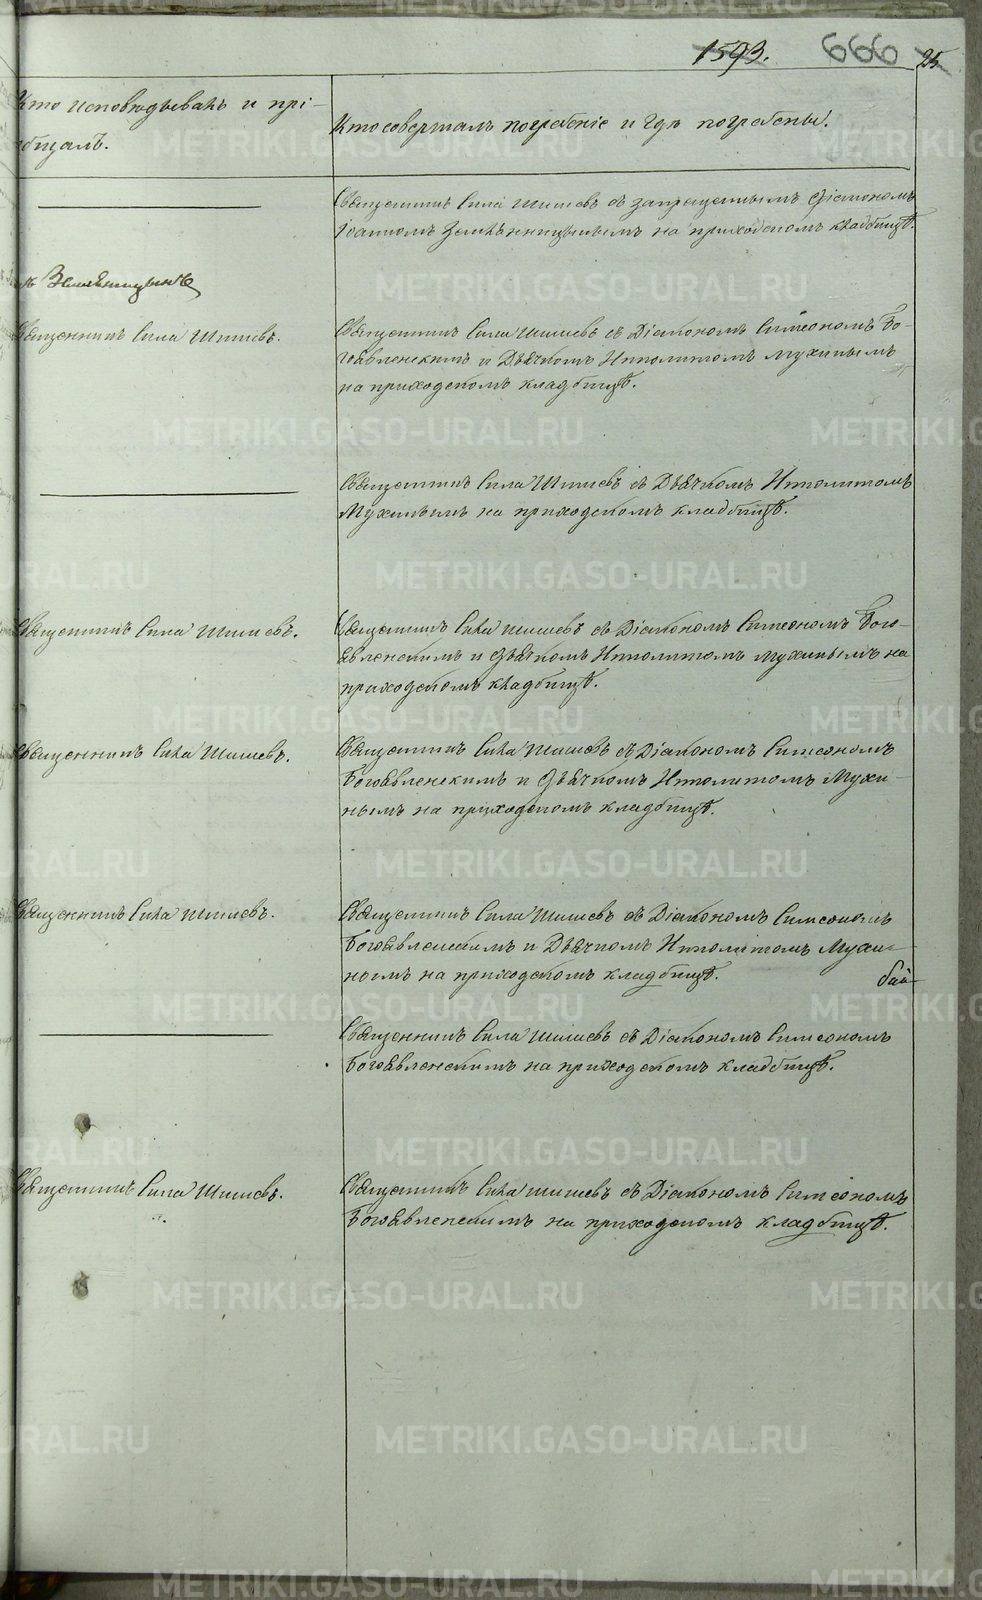 1593. 666 25
Кто исповѣдывалъ и прі-
общалъ.
Кто совершалъ погребеніе и гдѣ погребены.
Священникъ Сила Шишевъ съ запрещеннымъ Діакономъ
Іоанномъ Землѣницынымъ на приходскомъ кладбищѣ.
ъ Землѣницынъ
Священникъ Сила Шишевъ.
Священникъ Сила Шишевъ съ Діакономъ Симеономъ Бо-
гоявленскимъ и Дьячкомъ Ипполитомъ Мухинымъ
на приходскомъ кладбищѣ.
Священникъ Сила Шишевъ съ Дьячкомъ Ипполитомъ
Мухинымъ на приходскомъ кладбищѣ.
Священникъ Сила Шишевъ.
Священникъ Сила Шишевъ съ Діакономъ Симеономъ Бого-
явленскимъ и Дьячкомъ Ипполитомъ Мухинымъ на
приходскомъ кладбищѣ.
Священникъ Сила Шишевъ.
Священникъ Сила Шишевъ съ Діакономъ Симеономъ
Богоявленскимъ и Дьячкомъ Ипполитомъ Мухи-
нымъ на приходскомъ кладбищѣ.
Священникъ Сила Шишевъ.
Священникъ Сила Шишевъ съ Діакономъ Симеономъ
Богоявленскимъ и Дьячкомъ Ипполитомъ Мухи-
нымъ на приходскомъ кладбищѣ.
Священникъ Сила Шишевъ съ Діакономъ Симеономъ
Богоявленскимъ на приходскомъ кладбищѣ.
Священникъ Сила Шишевъ.
Священникъ Сила Шишевъ съ Діакономъ Симеономъ
Богоявленскимъ на приходскомъ кладбищѣ.
METRIKI.GASO-URAL.RU